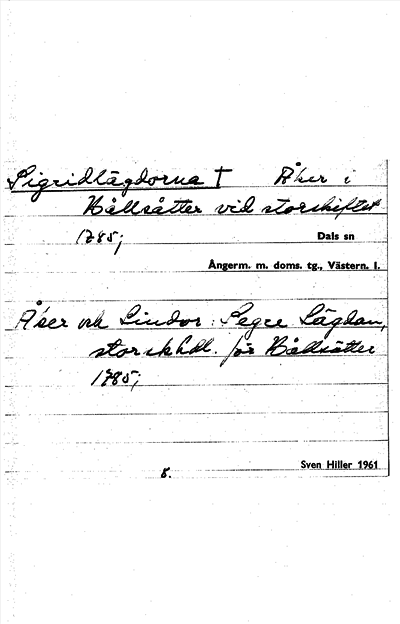 Sigridlägdorna † Åker i
Bållsätter vid storskiftet
1785;
Dals sn
Ångerm. m. doms. tg., Västern. l.
Åser och Lindor: Segre Lägdan,
storskhdl. för Bållsätter
1785;
Sven Hiller 1961
8.